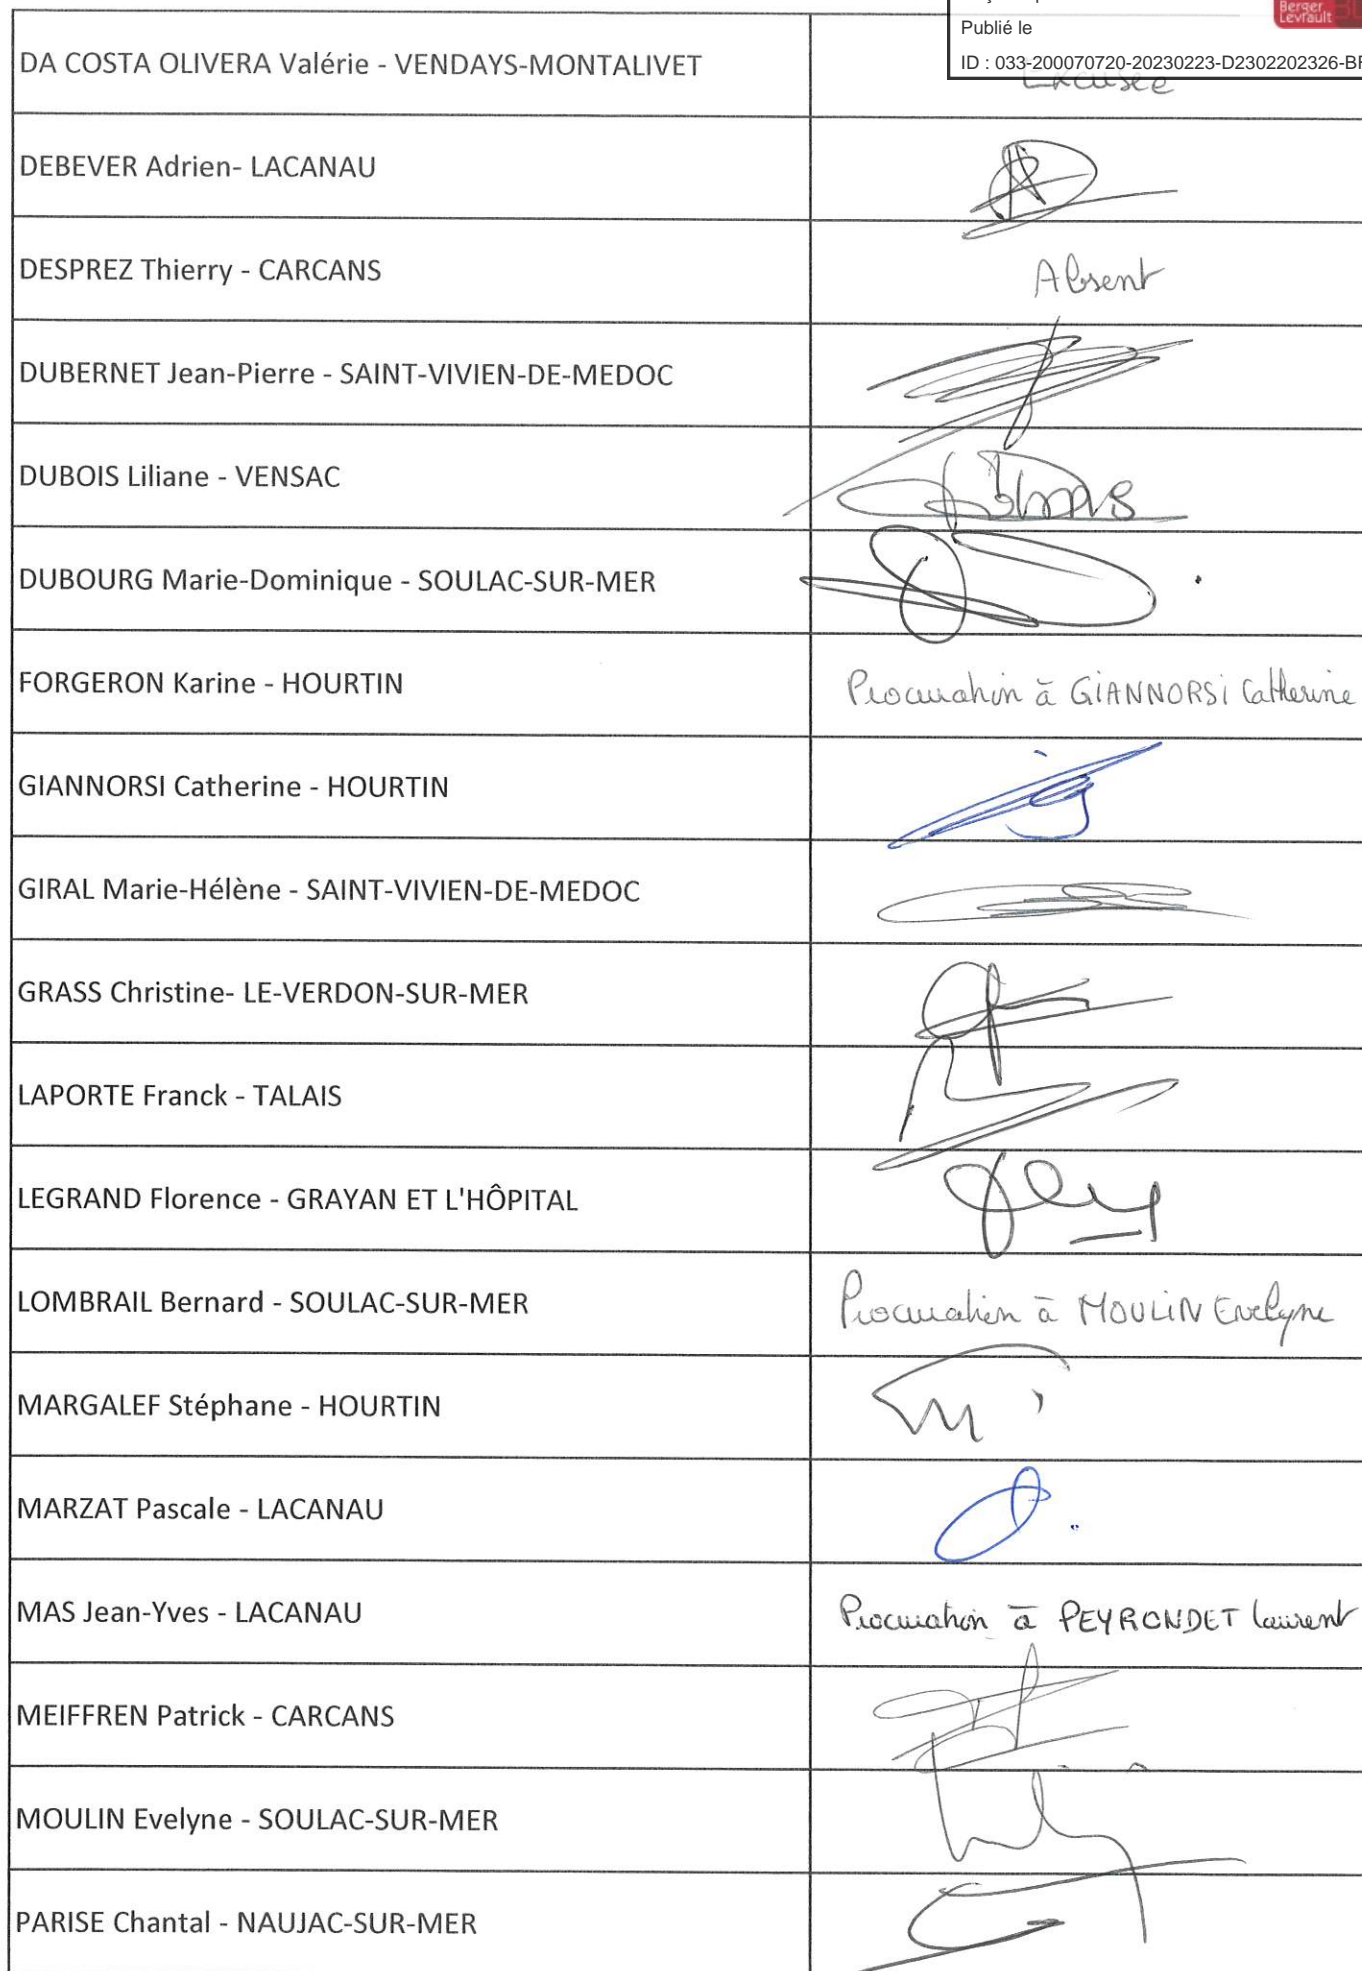 Berger
Levrault
Publié le
ID : 033-200070720-20230223-D2302202326-BF
DA COSTA OLIVERA Valérie - VENDAYS-MONTALIVET
Excusée
DEBEVER Adrien- LACANAU
DESPREZ Thierry - CARCANS
Absent
DUBERNET Jean-Pierre - SAINT-VIVIEN-DE-MEDOC
DUBOIS Liliane - VENSAC
DUBOURG Marie-Dominique - SOULAC-SUR-MER
FORGERON Karine - HOURTIN
Procuration à GIANNORSI Catherine
GIANNORSI Catherine - HOURTIN
GIRAL Marie-Hélène - SAINT-VIVIEN-DE-MEDOC
GRASS Christine- LE-VERDON-SUR-MER
LAPORTE Franck - TALAIS
LEGRAND Florence - GRAYAN ET L'HÔPITAL
LOMBRAIL Bernard - SOULAC-SUR-MER
Procuration à MOULIN Evelyne
MARGALEF Stéphane - HOURTIN
MARZAT Pascale - LACANAU
MAS Jean-Yves - LACANAU
Procuration à PEYRONDET Laurent
MEIFFREN Patrick - CARCANS
MOULIN Evelyne - SOULAC-SUR-MER
PARISE Chantal - NAUJAC-SUR-MER